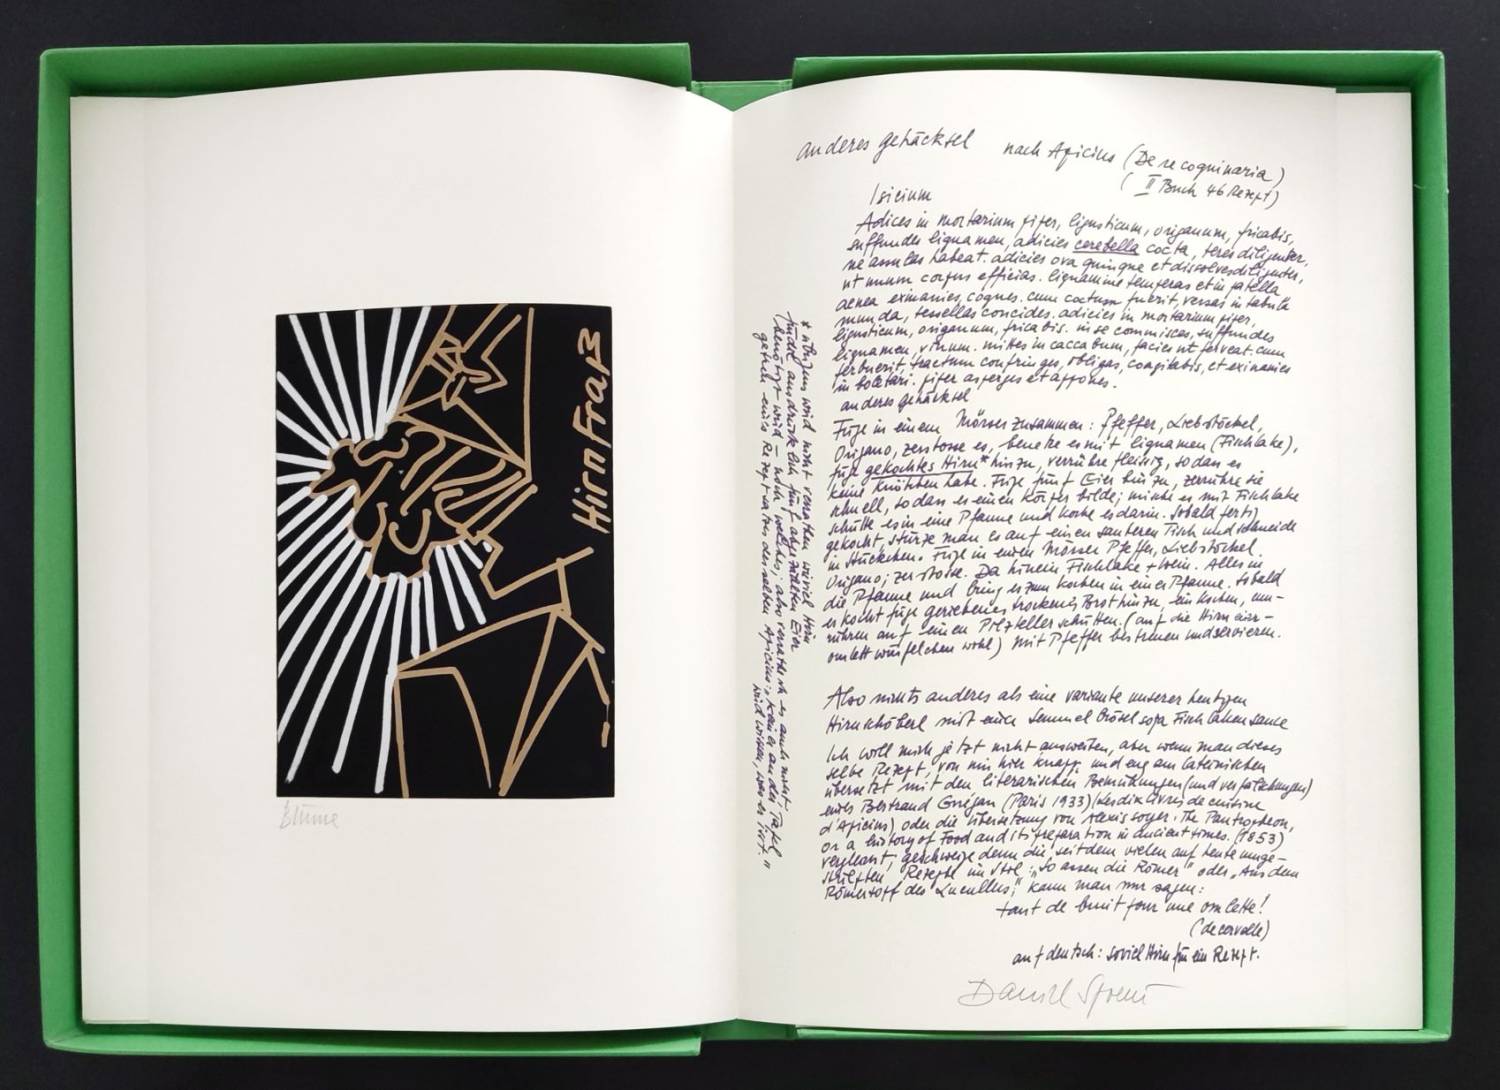 HirnFraß
Blume
anderes gehäcksel nach Apicius (De re coquinaria)
(II Buch 46 Rezept)
Isicium
Adices in mortarium piper, ligusticum, origanum, fricabis,
suffundes liquamen, adicies cerebella cocta, teres diligenter,
ne assulas habeat. adicies ova quinque et dissolves diligenter,
ut unum corpus efficias. liquamine temperas et in patella
aenea exinanies, coques. cum coctum fuerit, versas in tabula
munda, tessellas concides. adicies in mortarium piper,
ligusticum, origanum, fricabis. in se commisces, suffundes
liquamen, vinum. mittes in caccabum, facies ut ferveat. cum
ferbuerit, tractum confringes, obligas, coagitabis, et exinanies
in boletari. piper asperges et appones.
anderes gehäcksel
Füge in einem Mörser zusammen: Pfeffer, Liebstöckel,
Origano, zerstosse es, benetze es mit liquamen (Fischlake),
füge gekochtes Hirn* hinzu, verrühre fleissig, so dass es
keine Knötchen habe. Füge fünf Eier hinzu, zerrühre sie
schnell, sodass es einen Körper bilde; mische es mit Fischlake
schütte es in eine Pfanne und koche es darin. sobald fertig
gekocht, stürze man es auf einen sauberen Tisch und schneide
in Stückchen. Füge in einen Mörser Pfeffer, Liebstöckel.
Origano; zerstosse. Da hinein Fischlake + Wein. Alles in
die Pfanne und bring es zum kochen in einer Pfanne. sobald
es kocht füge geriebenes trockenes Brot hinzu, einkochen, um-
rühren auf einen Pilzteller schütten. (auf die Hirn
omlett würfelchen wohl) Mit Pfeffer bestreuen und servieren.
Also nichts anderes als eine variante unserer heutigen
Hirnschöberl mit einer Semmel brösel soja Fischlaken sauce
Ich will mich jetzt nicht ausweiten, aber wenn man dieses
selbe Rezept, von mir hier knapp und eng am lateinischen
übersetzt mit den literarischen Bemühungen (und verfälschungen)
eines Bertrand Guégan (Paris 1933) (Les dix livres de cuisine
d'Apicius) oder die übersetzung von Alexis soyer: The Pantropheon,
or a history of Food and its preparation in ancient times. (1853)
vergleicht, geschweige denn die, seitdem vielen auf heute umge-
stülpten Rezepte im Stil: "So assen die Römer" oder "Aus dem
Römertopf des Lucullus", kann man nur sagen:
tant de bruit pour une omlette!
(de cervelle)
auf deutsch: soviel Hirn für ein Rezept.
Daniel Spoerri
* übrigens wird nicht verraten wieviel Hirn
(benötigt wird - noch welches; also verrate ich es auch nicht.
findet ausdrücklich fünf abgezählten Eier
getreu eines Rezept-
wird wissen, was er isst."